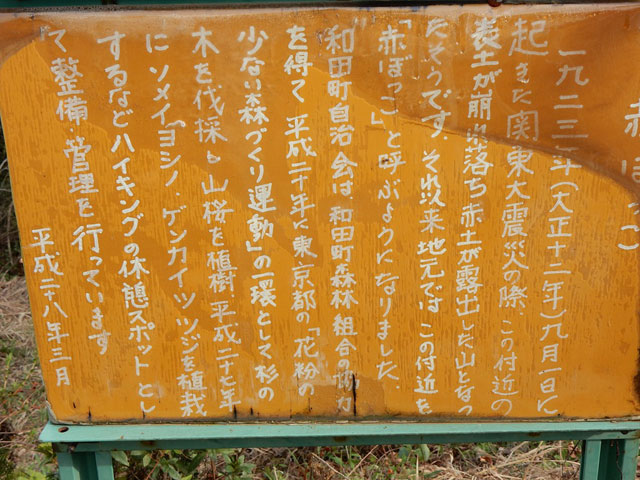 赤ぼっこ
一九二三年(大正十二年)九月一日に
起きた関東大震災の際、この付近の
表土が崩れ落ち赤土が露出した山となっ
たそうです。それ以来地元では この付近を
「赤ぼっこ」と呼ぶようになりました。
和田町自治会は、和田町森林組合の協力
を得て 平成二十年に東京都の「花粉の
少ない森づくり運動」の一環として杉の
木を伐採し山桜を植樹、平成二十七年
にソメイヨシノ・ゲンカイツツジを植栽
するなどハイキングの休憩スポットとし
て整備・管理を行っています
平成二十八年三月